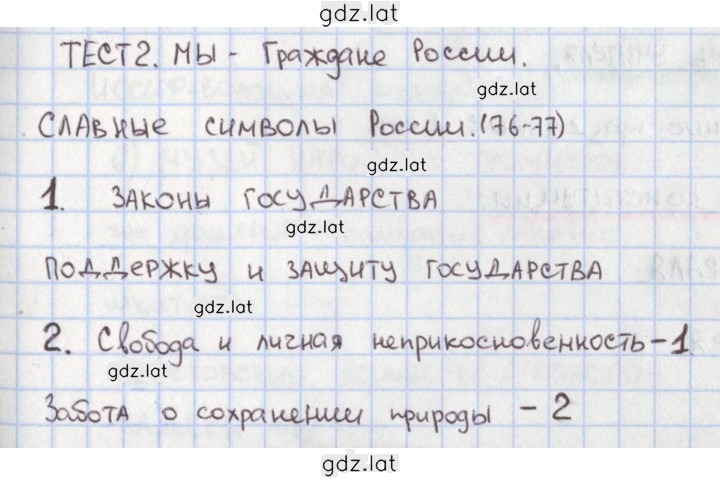 gdz.lat
ТЕСТ 2. МЫ - Граждане России.
gdz.lat
СЛАВНЫЕ СИМВОЛЫ РОССИИ. (76-77)
gdz.lat
1. ЗАКОНЫ ГОСУДАРСТВА
gdz.lat
ПОДДЕРЖКУ И ЗАЩИТУ ГОСУДАРСТВА
gdz.lat
2. Свобода и личная неприкосновенность - 1
gdz.lat
Забота о сохранении природы - 2
gdz.lat